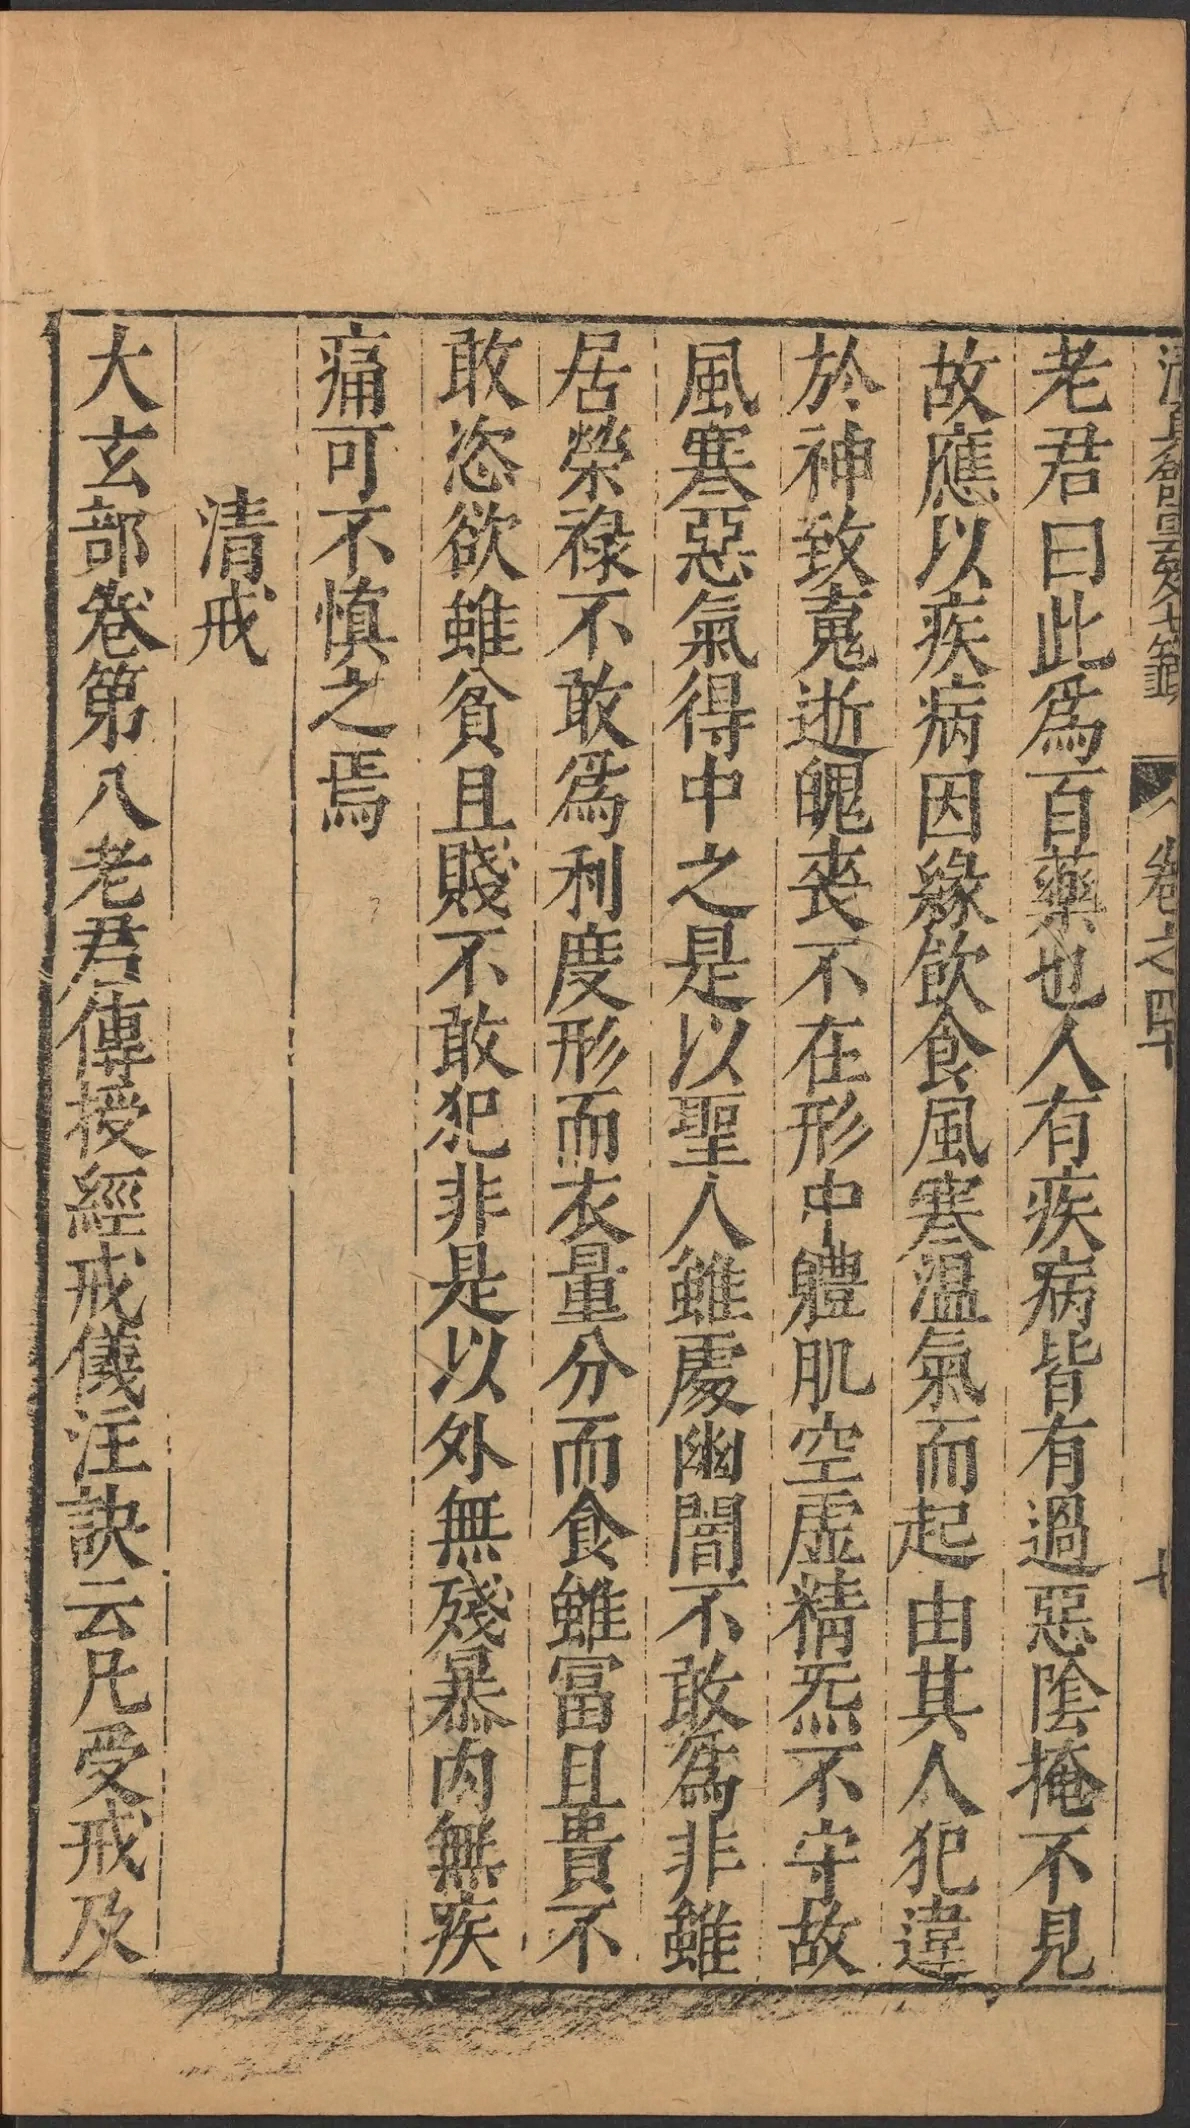 卷之四十
老君曰此為百藥也人有疾病皆有過惡陰掩不見
故應以疾病因緣飲食風寒溫氣而起由其人犯違
於神致䰟逝魄喪不在形中體肌空虛精炁不守故
風寒惡氣得中之是以聖人雖處幽闇不敢為非雖
居榮祿不敢為利度形而衣量分而食雖富且貴不
敢恣欲雖貧且賤不敢犯非是以外無殘暴內無疾
痛可不慎之焉
清戒
大玄部卷第八老君傳授經戒儀注訣云凡受戒及